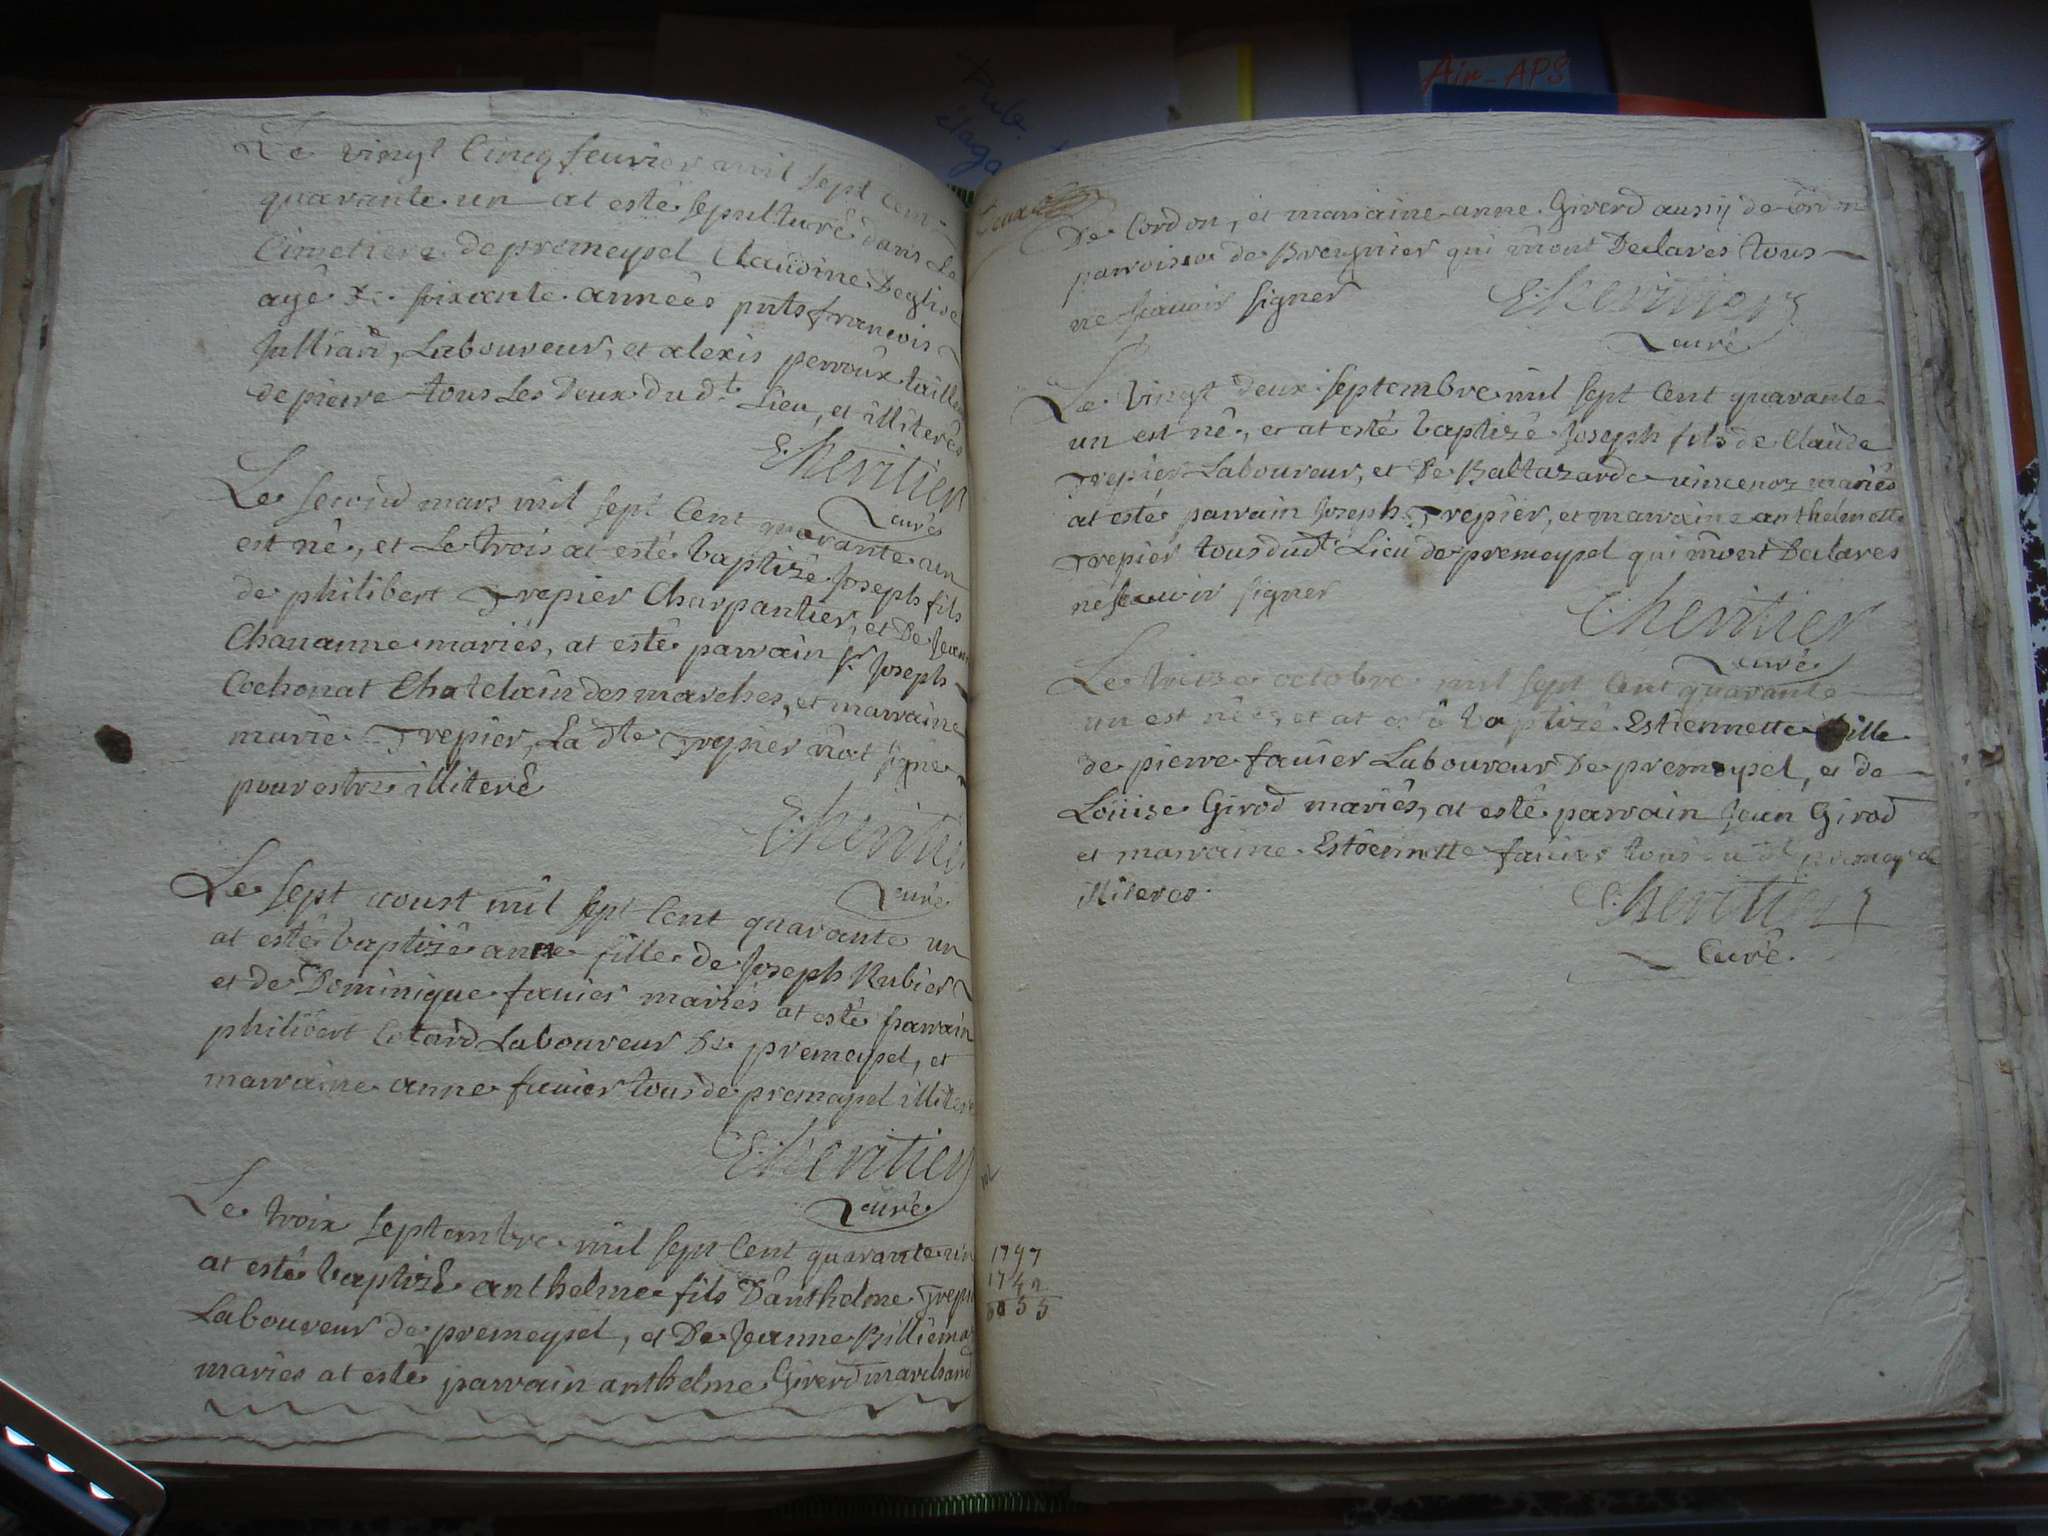 Air-APS
Trub.
élaga
Le vingt Cinq feuvrier mil sept Cent
quarante un at esté sepulturé dans Le
Cimetiere de premeysel Claudine Deglise
agé de soixante années pnts francois
Julliand, Laboureur, et alexis perroux tailleur
de pierre tous Les Deux du dt. Lieu, et illiterés
E. heritier
curé
Le second mars mil sept Cent quarante un
est né, et Le trois at esté baptizé Joseph fils
de philibert Trepier Charpantier, et De Jeanne
Chauanne mariés, at esté parrain sr. Joseph
Cochonat Chatelain des marches, et marraine
marie Trepier, La dte Trepier n'at signé
pour estre illiteré
E. heritier
curé
Le sept aoust mil sept Cent quarante un
at esté baptizé anne fille de Joseph Rubier
et de Dominique fauier mariés at esté parrain
philibert Cotard Laboureur De premeysel, et
marraine anne fauier tous de premeysel illiterés
E. heritier
curé
Le troix septembre mil sept Cent quarante un
at esté baptizé anthelme fils D'anthelme Trepier
Laboureur de premeysel, et De Jeanne Billiemaz
mariés at esté parrain anthelme Giverd marchand
De Cordon, et marraine anne Giverd aussy de Cordon
parroisse de Breignier qui m'ont Declarés tous
ne scauoir signer
E. heritier
curé
Le vingt deux septembre mil sept Cent quarante
un est né, et at esté baptizé Joseph fils de Claude
Trepier Laboureur, et De Baltazarde uincenoz mariés
at esté parrain Joseph Trepier, et marraine anthelmette
Trepier tous dudt Lieu de premeysel qui m'ont Declarés
ne scauoir signer
E. heritier
curé
Le treize octobre mil sept Cent quarante
un est née, et at esté baptizé Estiennette fille
de pierre fauier Laboureur De premeysel, et de
Loüise Girod mariés, at esté parrain Jean Girod
et marraine Estiennette fauier tous du dt premeysel
illiteres.
E. heritier
Curé.
1747
1742